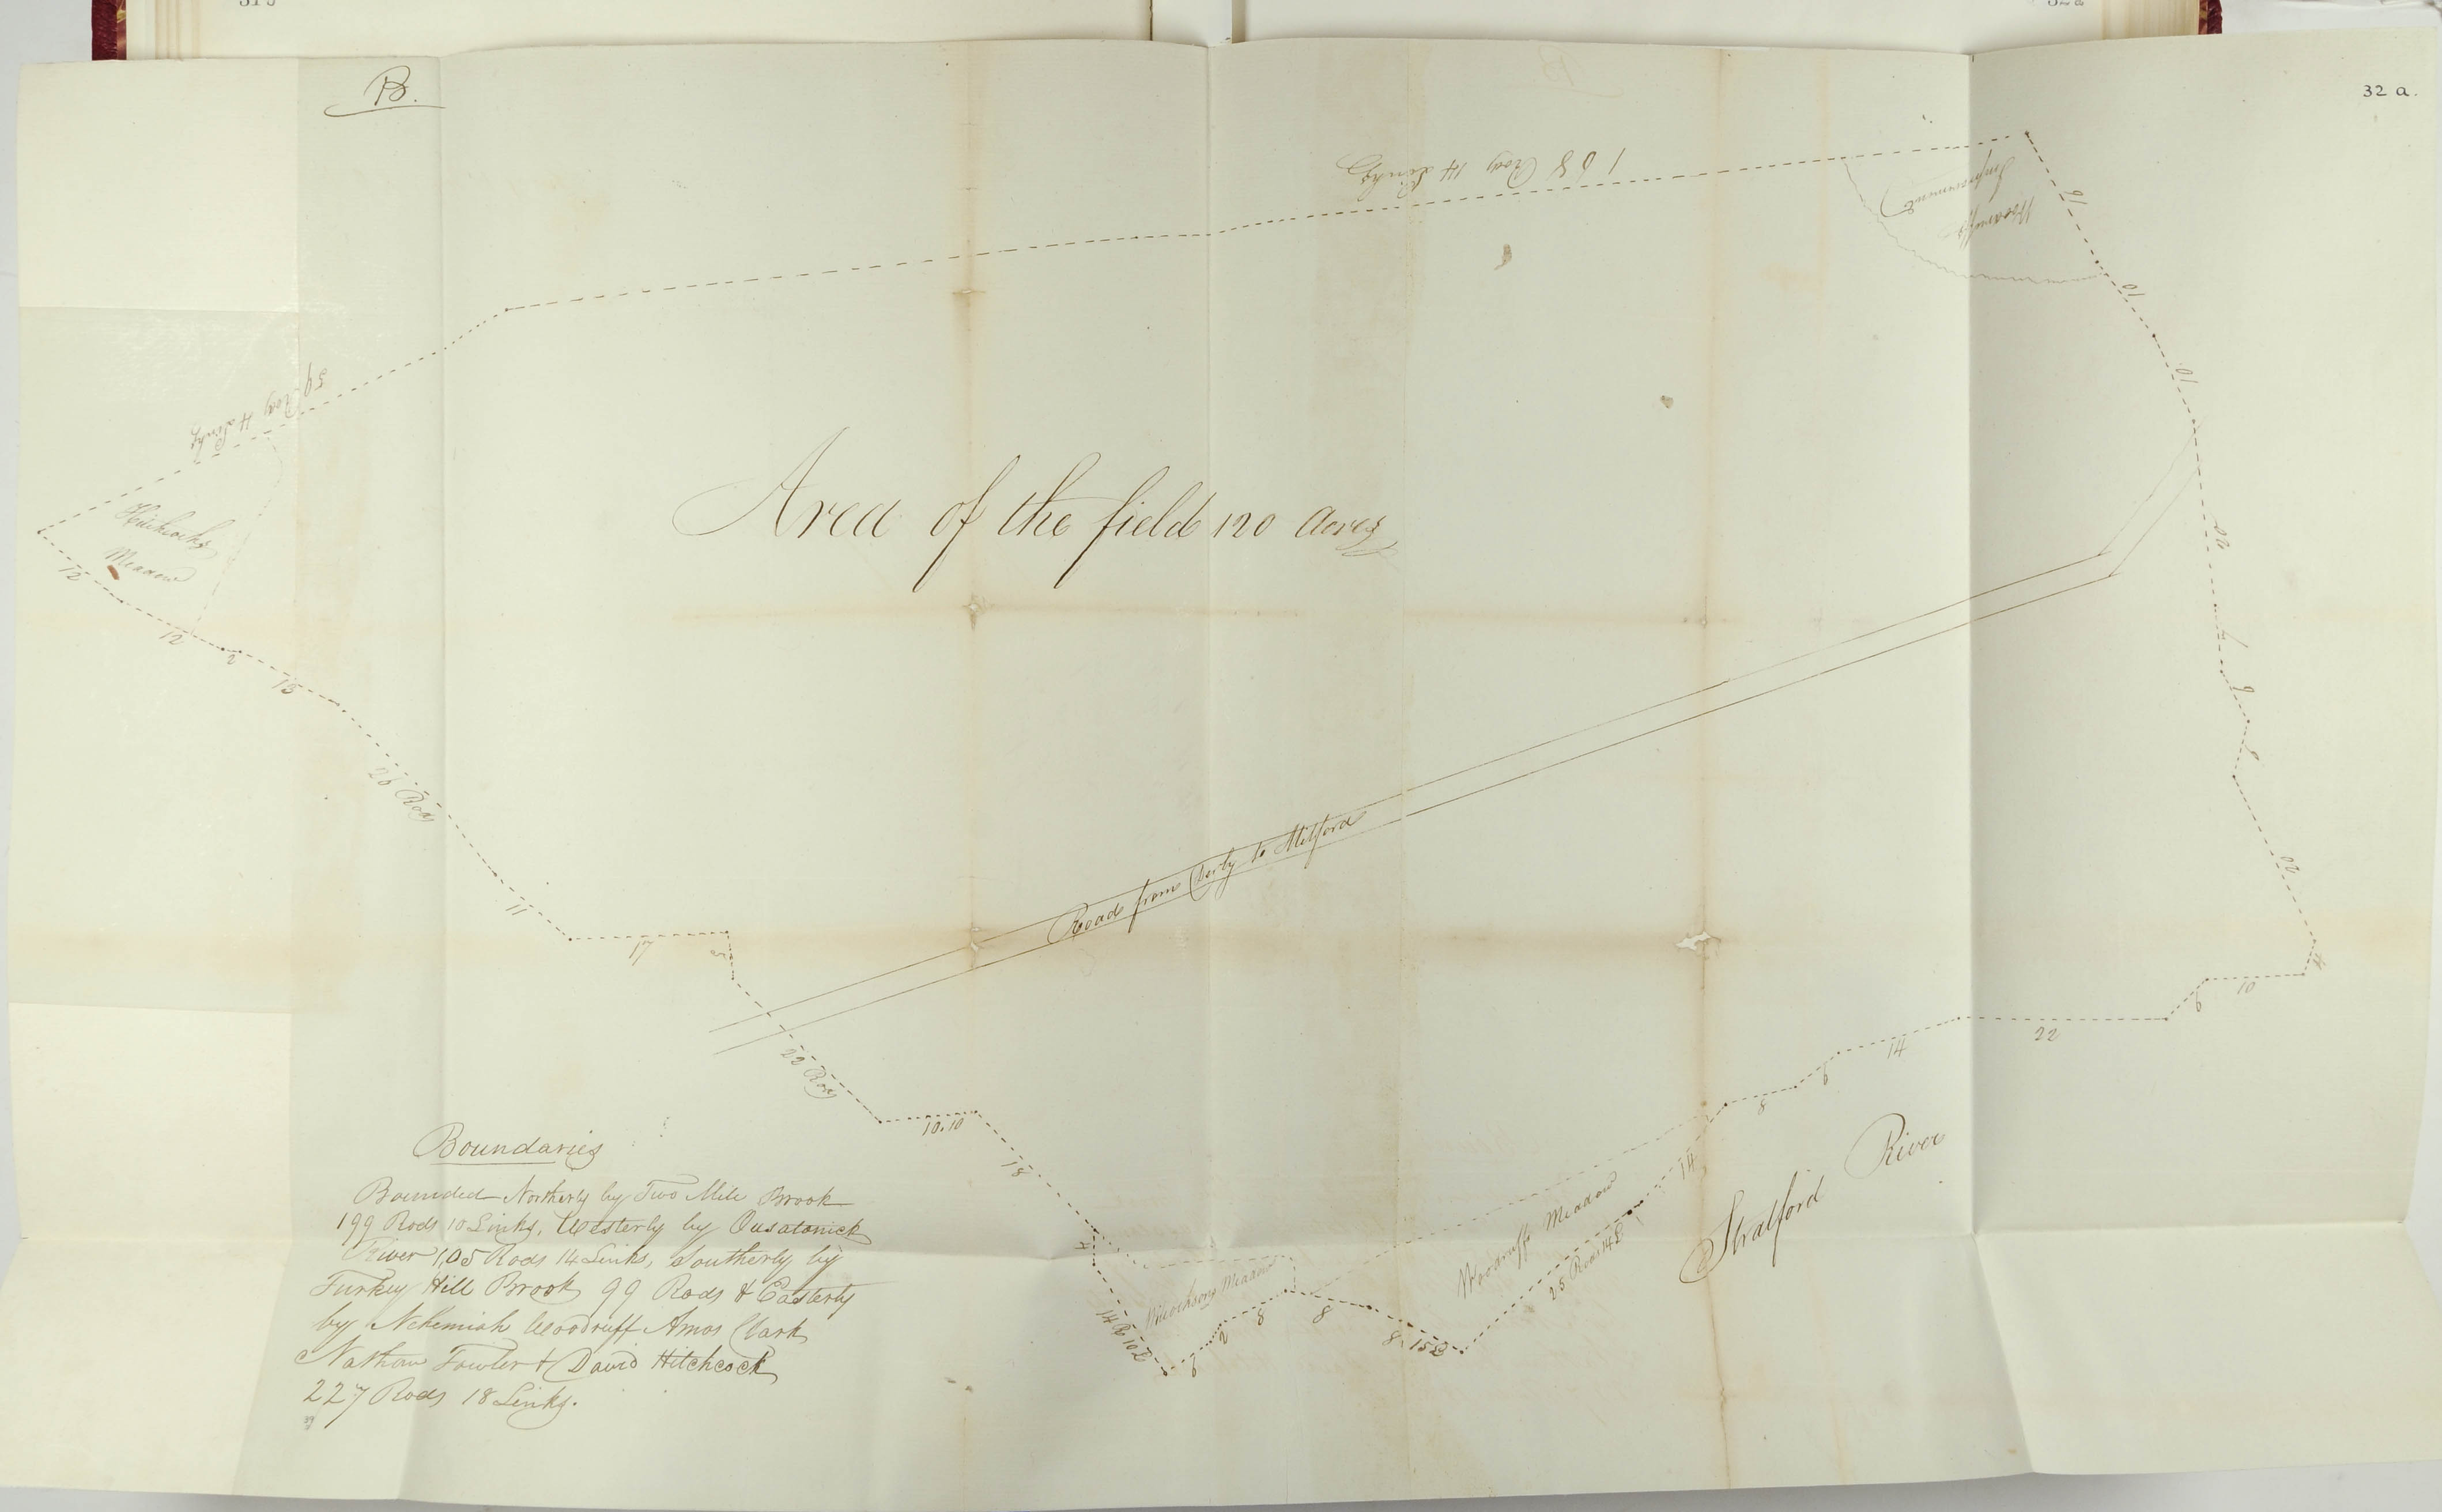 B.
32 a.
168 Rods 14 Links
Woodruffs
Improvement
59 Rods 4 Links
Hitchcocks
Meadow
Area of the field 120 Acres
16
10
10
22
7
9
20
4
10
9
22
14
9
8
14
12
12
2
13
26 Rods
11
17
5
22 Rods
10.10
18
4
14 R 10 L
9
2
8
8
8 15 L
25 Rods 14 L
Road from Derby to Milford
Woodruffs Meadow
Stratford River
Boundaries
Bounded Northerly by Two Mile Brook
199 Rods 10 Links, Westerly by Ousatonick
River 105 Rods 14 Links, Southerly by
Turkey Hill Brook 99 Rods & Easterly
by Nehemiah Woodruff Amos Clark
Nathan Fowler & David Hitchcock
227 Rods 18 Links.